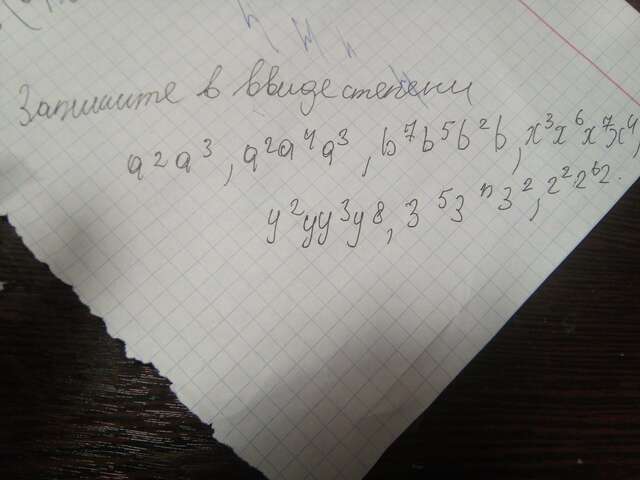 Запишите в ввиде степени
a²a³, a²a⁴a³, b⁷b⁵b²b, x³x⁶x⁷x⁴,
y²yy³y⁸, 3⁵3ⁿ3², 2²·2⁶2.